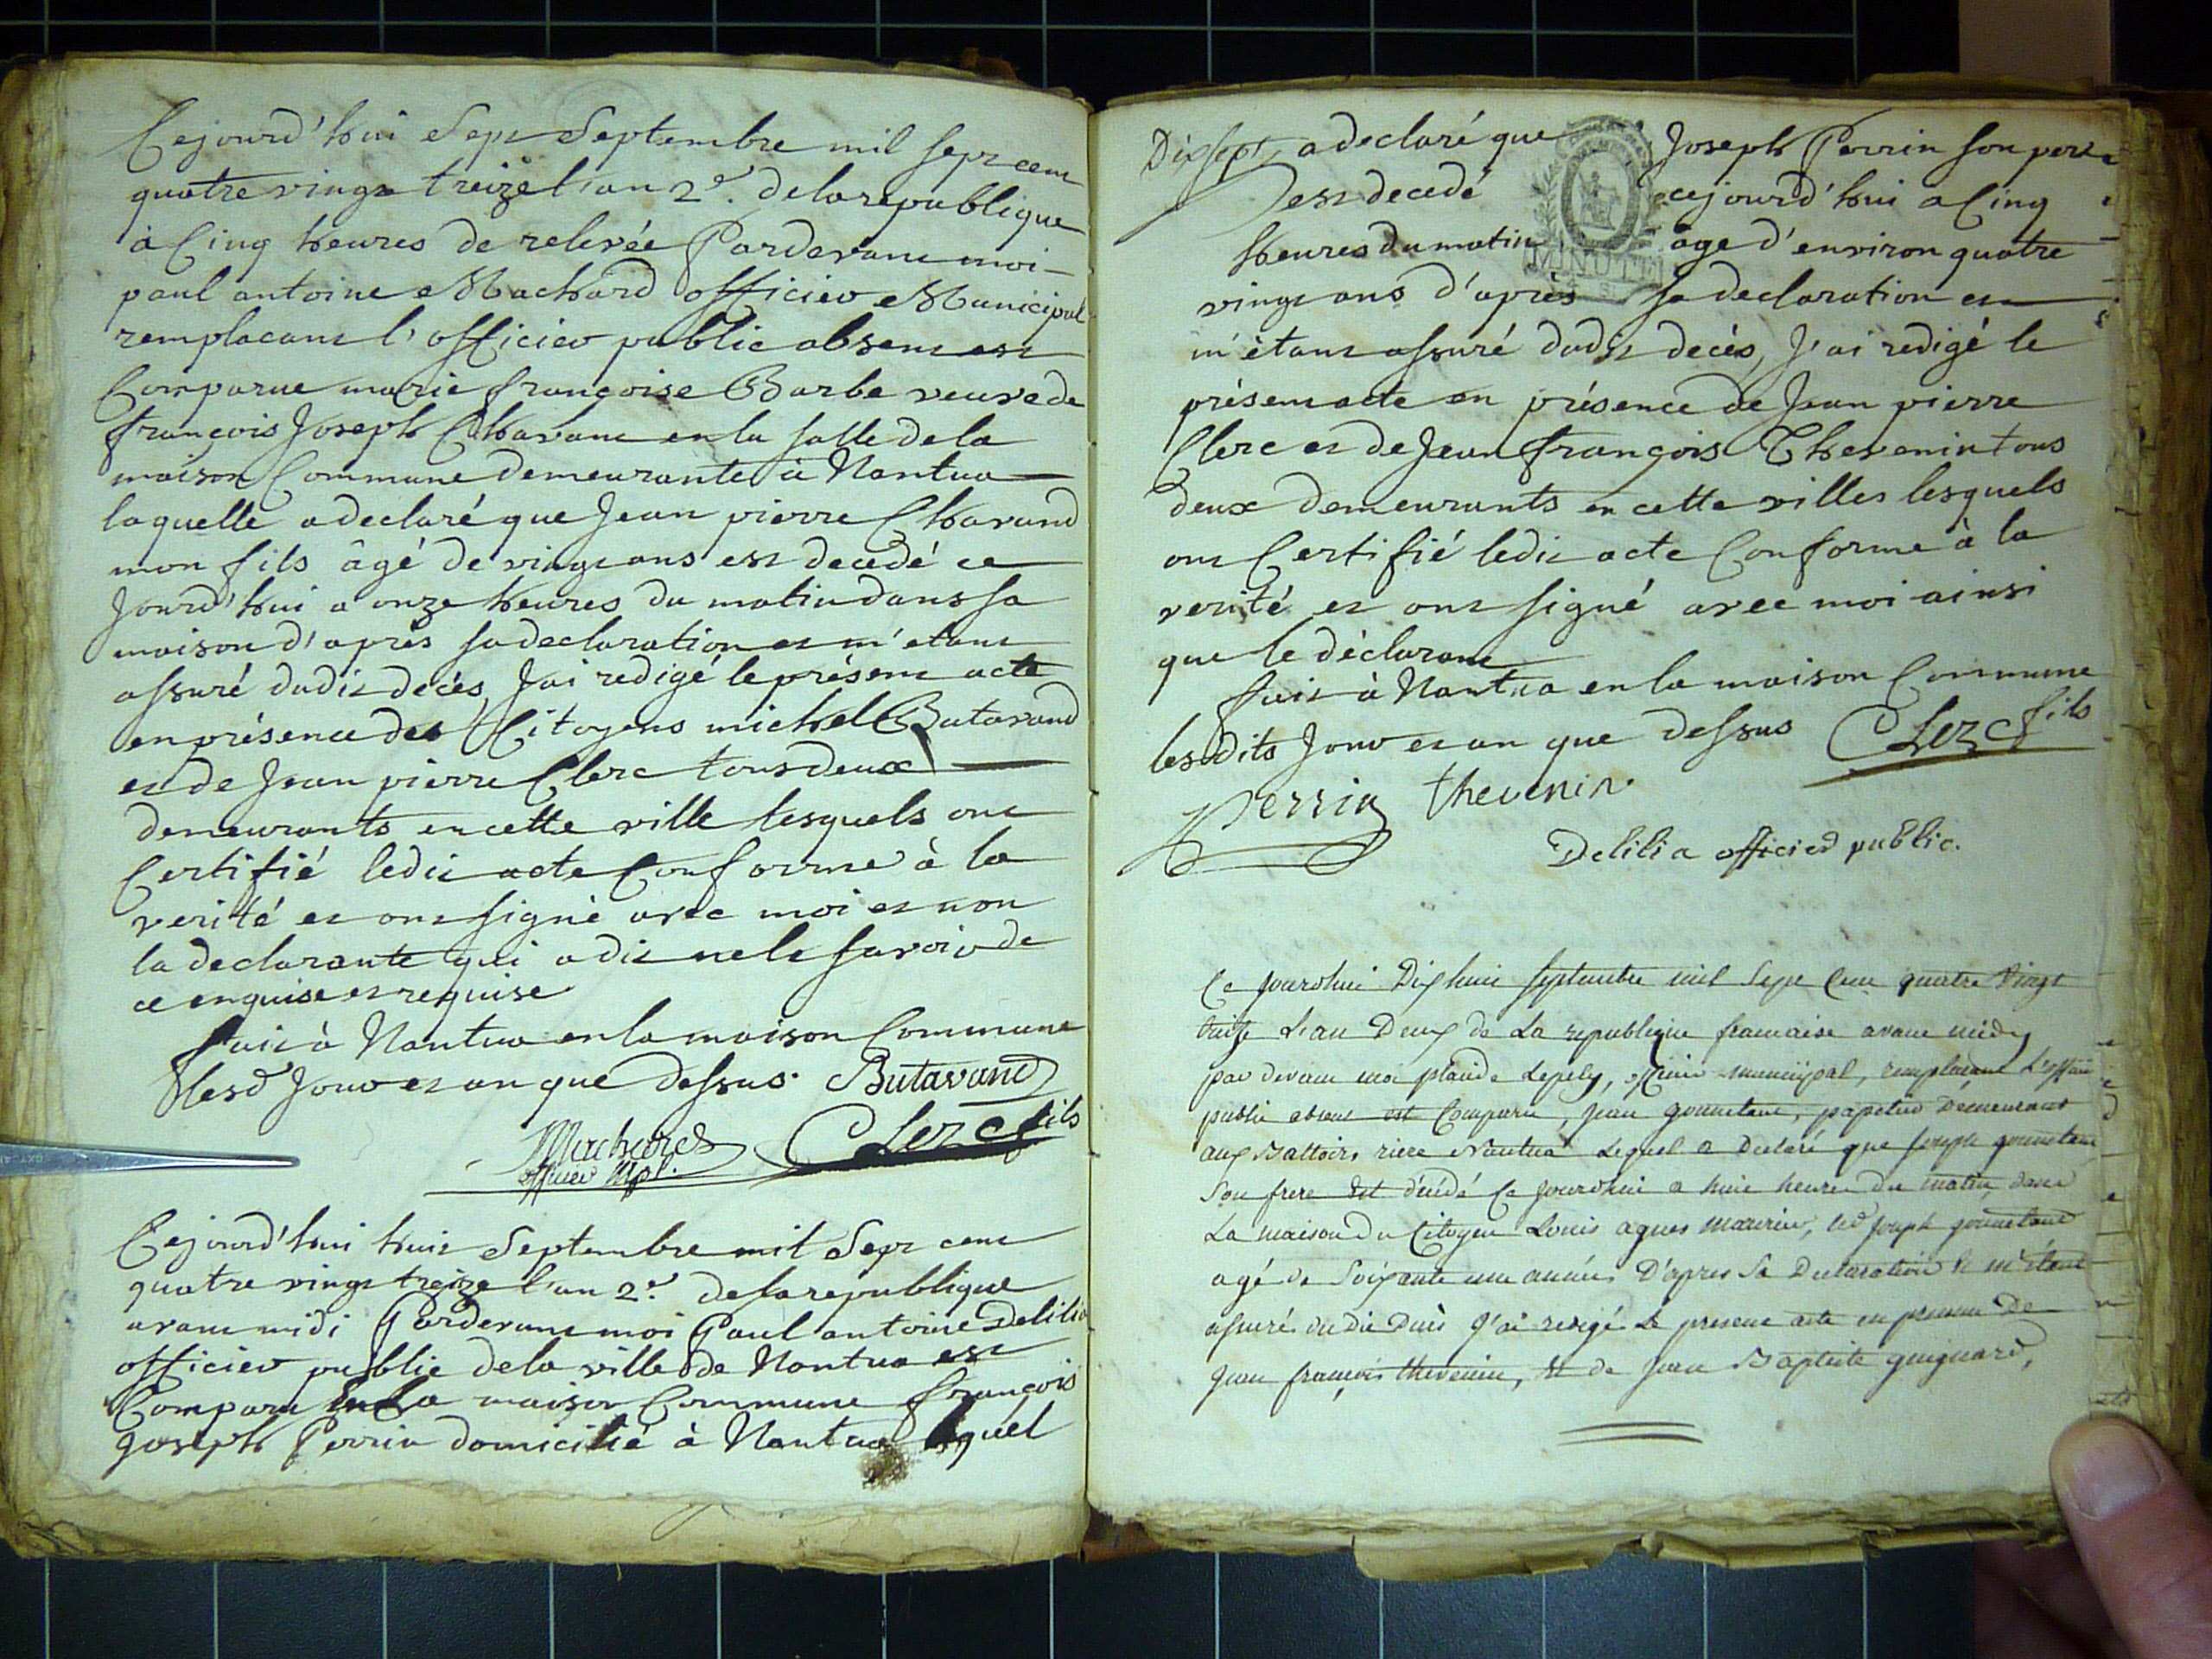 Cejourd'hui Sept Septembre mil Sept cent
quatre vingt treize l'an 2e. de la republique
à Cinq heures de relevée Pardevant moi
paul antoine Machard officier Municipal
remplacant l'officier public absent est
Comparue marie françoise Barbe veuve de
françois Joseph Charant en la salle de la
maison Commune demeurante à Nantua
laquelle a declaré que Jean pierre Charand
mon fils âgé de vingt ans est decedé ce
Jourd'hui a onze heures du matin dans sa
maison d'après sa declaration et m'etant
assuré dudit decès, J'ai redigé le présent acte
en présence des Citoyens michel Butavand
et de Jean pierre Clerc tous deux
demeurants en cette ville lesquels ont
Certifié ledit acte Conforme à la
verité et ont signé avec moi et non
la declarante qui a dit ne le savoir de
ce enquise et requise
fait à Nantua en la maison Commune
lesd Jour et an que dessus. Butavand
Machard Clerc fils
officier Mpl.
Cejourd'hui huit Septembre mil Sept cent
quatre vingt treize l'an 2e. de la republique
avant midi Pardevant moi Paul antoine Delilia
officier public de la ville de Nantua est
Comparu En La maison Commune françois
Joseph Perrin domicilié à Nantua lequel
Dix sept, a declaré que Joseph Perrin son pere
est decedé cejourd'hui a Cinq
heures du matin âge d'environ quatre
MINUTE
vingt ans d'après sa declaration et
m'ètant assuré dudit decès, J'ai redigé le
présent acte en présence de Jean pierre
Clerc et de Jean françois Thevenin tous
deux demeurants en cette villes lesquels
ont Certifié ledit acte Conforme à la
verité et ont signé avec moi ainsi
que le dèclarant
fait à Nantua en la maison Commune
lesdits Jour et an que dessus Clerc fils
Perrin thevenin.
Delilia officier public.
Ce jourdhui Dix huit septembre mil Sept Cent quatre Vingt
treize L'an Deux de La republique francaise avant midy
par devant moi plaide Lepely, officier municipal, remplacant L'officier
public absent est Comparu, jean gonnetant, papetier Demeurant
aux Battoirs riere Nantua Lequel a Declaré que joseph gonnetant
Son frere Est décédé Ce jourdhui a huit heures du matin, dans
La maison du Citoyen Louis agnes maurier, led joseph gonnetant
agé de Soixante une années D'apres Sa Declaration & m'étant
assuré du dit Decès J'ai redigé Le present acte en presence De
jean françois thevenin, Et de jean Baptiste guignard,